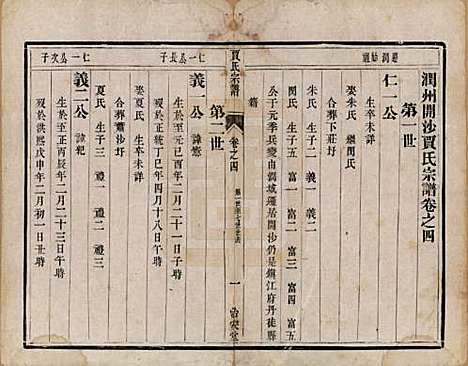 潤州開沙賈氏宗譜卷之四
第一世
仁一公
生卒未詳
娶朱氏 繼閔氏
合葬下莊圩
朱氏 生子二 義一 義二
閔氏 生子五 富一 富二 富三 富四 富五
公于元季兵變由潤城遷居開沙仍是鎮江府丹徒縣
籍
賈氏宗譜
卷之四
一
治安堂
第二世
仁一公長子
義一公
生於至元己酉年二月二十一日子時
歿於洪武丁巳年四月十八日午時
娶夏氏 生卒未詳
合葬蕭沙圩
夏氏 生子三 禮一 禮二 禮三
仁一公次子
義二公 諱
生於至正丙辰年二月二十三日午時
歿於洪熙戊申年二月初一日丑時